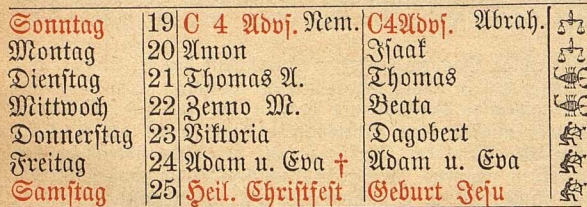 Sonntag 19 C 4 Advs. Nem. C4Advs. Abrah.
Montag 20 Amon Isaak
Dienstag 21 Thomas A. Thomas
Mittwoch 22 Zenno M. Beata
Donnerstag 23 Viktoria Dagobert
Freitag 24 Adam u. Eva † Adam u. Eva
Samstag 25 Heil. Christfest Geburt Jesu